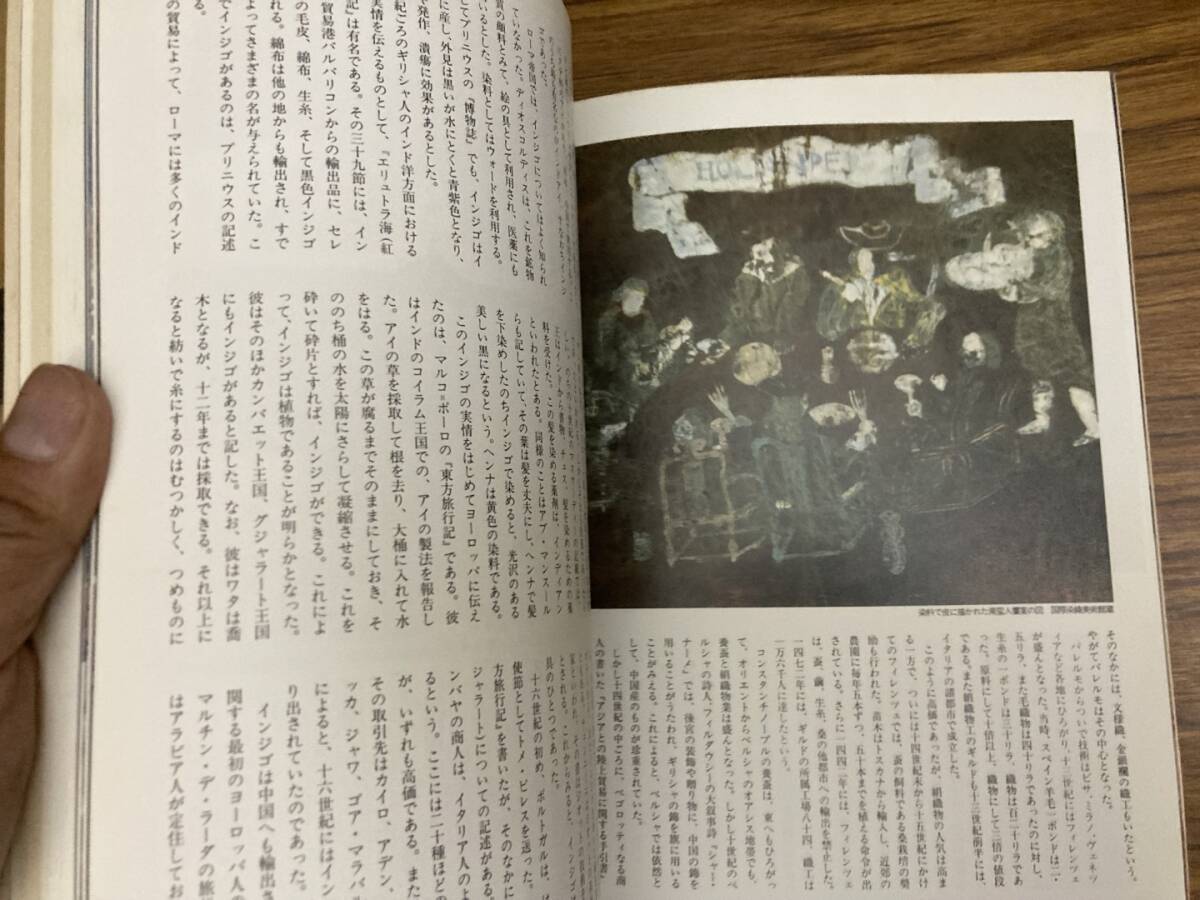 染料で皮に描かれた南蛮人饗宴の図　国際染織美術館蔵
そのなかには、文様織、金銀欄の織工もいたという。
やがて、パレルモはその中心となった。
パレルモからついで技術はピサ、ミラノ、ヴェネツ
ィアなど各地にひろがり、十三世紀にはフィレンツェ
が盛んとなった。当時、スペイン羊毛一ポンドは二・
五リラ、また毛織物は四十リラであったのに対し、
生糸の一ポンドは三十リラ、織物は百二十リラであ
った。原料にして十倍以上、織物にして三倍の値段
である。また絹織物工のギルドも十三世紀前半には、
イタリアの諸都市で成立した。
このように高価であったが、絹織物の人気は高ま
る一方で、ついには十四世紀末から十五世紀にかけ
てのフィレンツェでは、蚕の飼料である桑栽培の奨
励も行われた。苗木はトスカナから輸入し、近郊の
農園に毎年五本ずつ、五十本までを植える命令が出
されている。さらに一四四一年には、フィレンツェ
は、蚕、繭、生糸、桑の他都市への輸出を禁止した。
一四七二年には、ギルドの所属工場八十四、織工は
一万六千人に達したという。
コンスタンチノープルの養蚕は、東へもひろがっ
て、オリエントからペルシャのオアシス地帯でも、
養蚕と絹織物業は盛んとなった。しかし十世紀のペ
ルシャの詩人、フィルダウシーの大叙事詩『シャー・
ナーメ』では、後宮の装飾や贈り物に、中国の錦を
用いることがうたわれ、ギリシャの錦を旗に用いる
ことがみえる。これによると、ペルシャでは依然と
して、中国産のものが珍重されていた。
しかし十四世紀の中ごろに、ペゴロッティなる商
人の書いた、『アジアとの陸上貿易に関する手引書』
ローマ帝国では、インジゴについてはよく知られ
ていなかった。ディオスコルディスは、これを鉱物
質の顔料とみて、絵の具として利用され、医薬にも
いるとした。染料としてはウォードを利用する。
してプリニウスの『博物誌』でも、インジゴはイ
に産し、外見は黒いが水にとくと青紫色となり、
や発作、潰瘍に効果があるとした。
紀ごろのギリシャ人のインド洋方面における
実情を伝えるものとして、『エリュトラ海（紅
記』は有名である。その三十九節には、イン
貿易港バルバリコンからの輸出品に、セレ
の毛皮、綿布、生糸、そして黒色インジゴ
れる。綿布は他の地からも輸出され、すで
よってさまざまの名が与えられていた。こ
でインジゴがあるのは、プリニウスの記述
る。
の貿易によって、ローマには多くのインド
王はインドから書物、チェス、髪を染めるための染
料を受けた。この髪を染める薬剤は、インディアン
といわれたとある。同様のことはアブ・マンスール
らも記していて、その葉は髪を丈夫にし、ヘンナで髪
を下染めしたのちインジゴで染めると、光沢のある
美しい黒になるという。ヘンナは黄色の染料である。
このインジゴの実情をはじめてヨーロッパに伝え
たのは、マルコ＝ポーロの『東方旅行記』である。彼
はインドのコイラム王国での、アイの製法を報告し
た。アイの草を採取して根を去り、大桶に入れて水
をはる。この草が腐るまでそのままにしておき、そ
ののち桶の水を太陽にさらして凝縮させる。これを
砕いて砕片とすれば、インジゴができる。これによ
って、インジゴは植物であることが明らかとなった。
彼はそのほかカンバエット王国、グジャラート王国
にもインジゴがあると記した。なお、彼はワタは喬
木となるが、十二年までは採取できる。それ以上に
なると紡いで糸にするのはむつかしく、つめものに
とされる。これからみると、インジゴ
具のひとつであった。
十六世紀の初め、ポルトガルは、
使節としてトメ・ピレスを送った。
方旅行記』を書いたが、そのなかに
ジャラート）についての記述がある。
ンバヤの商人は、イタリア人のよ
るという。ここには二十種ほどの
が、いずれも高価である。また
その取引先はカイロ、アデン、
ッカ、ジャワ、ゴア・マラバル
によると、十六世紀にはイン
り出されていたのであった。
インジゴは中国へも輸出さ
関する最初のヨーロッパ人の
マルチン・デ・ラーダの旅
はアラビア人が定住してお